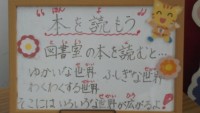 "本を読もう"
図書室の本を読むと…
ゆかいな世界 ふしぎな世界
わくわくする世界
そこにはいろいろな世界が広がるよ！